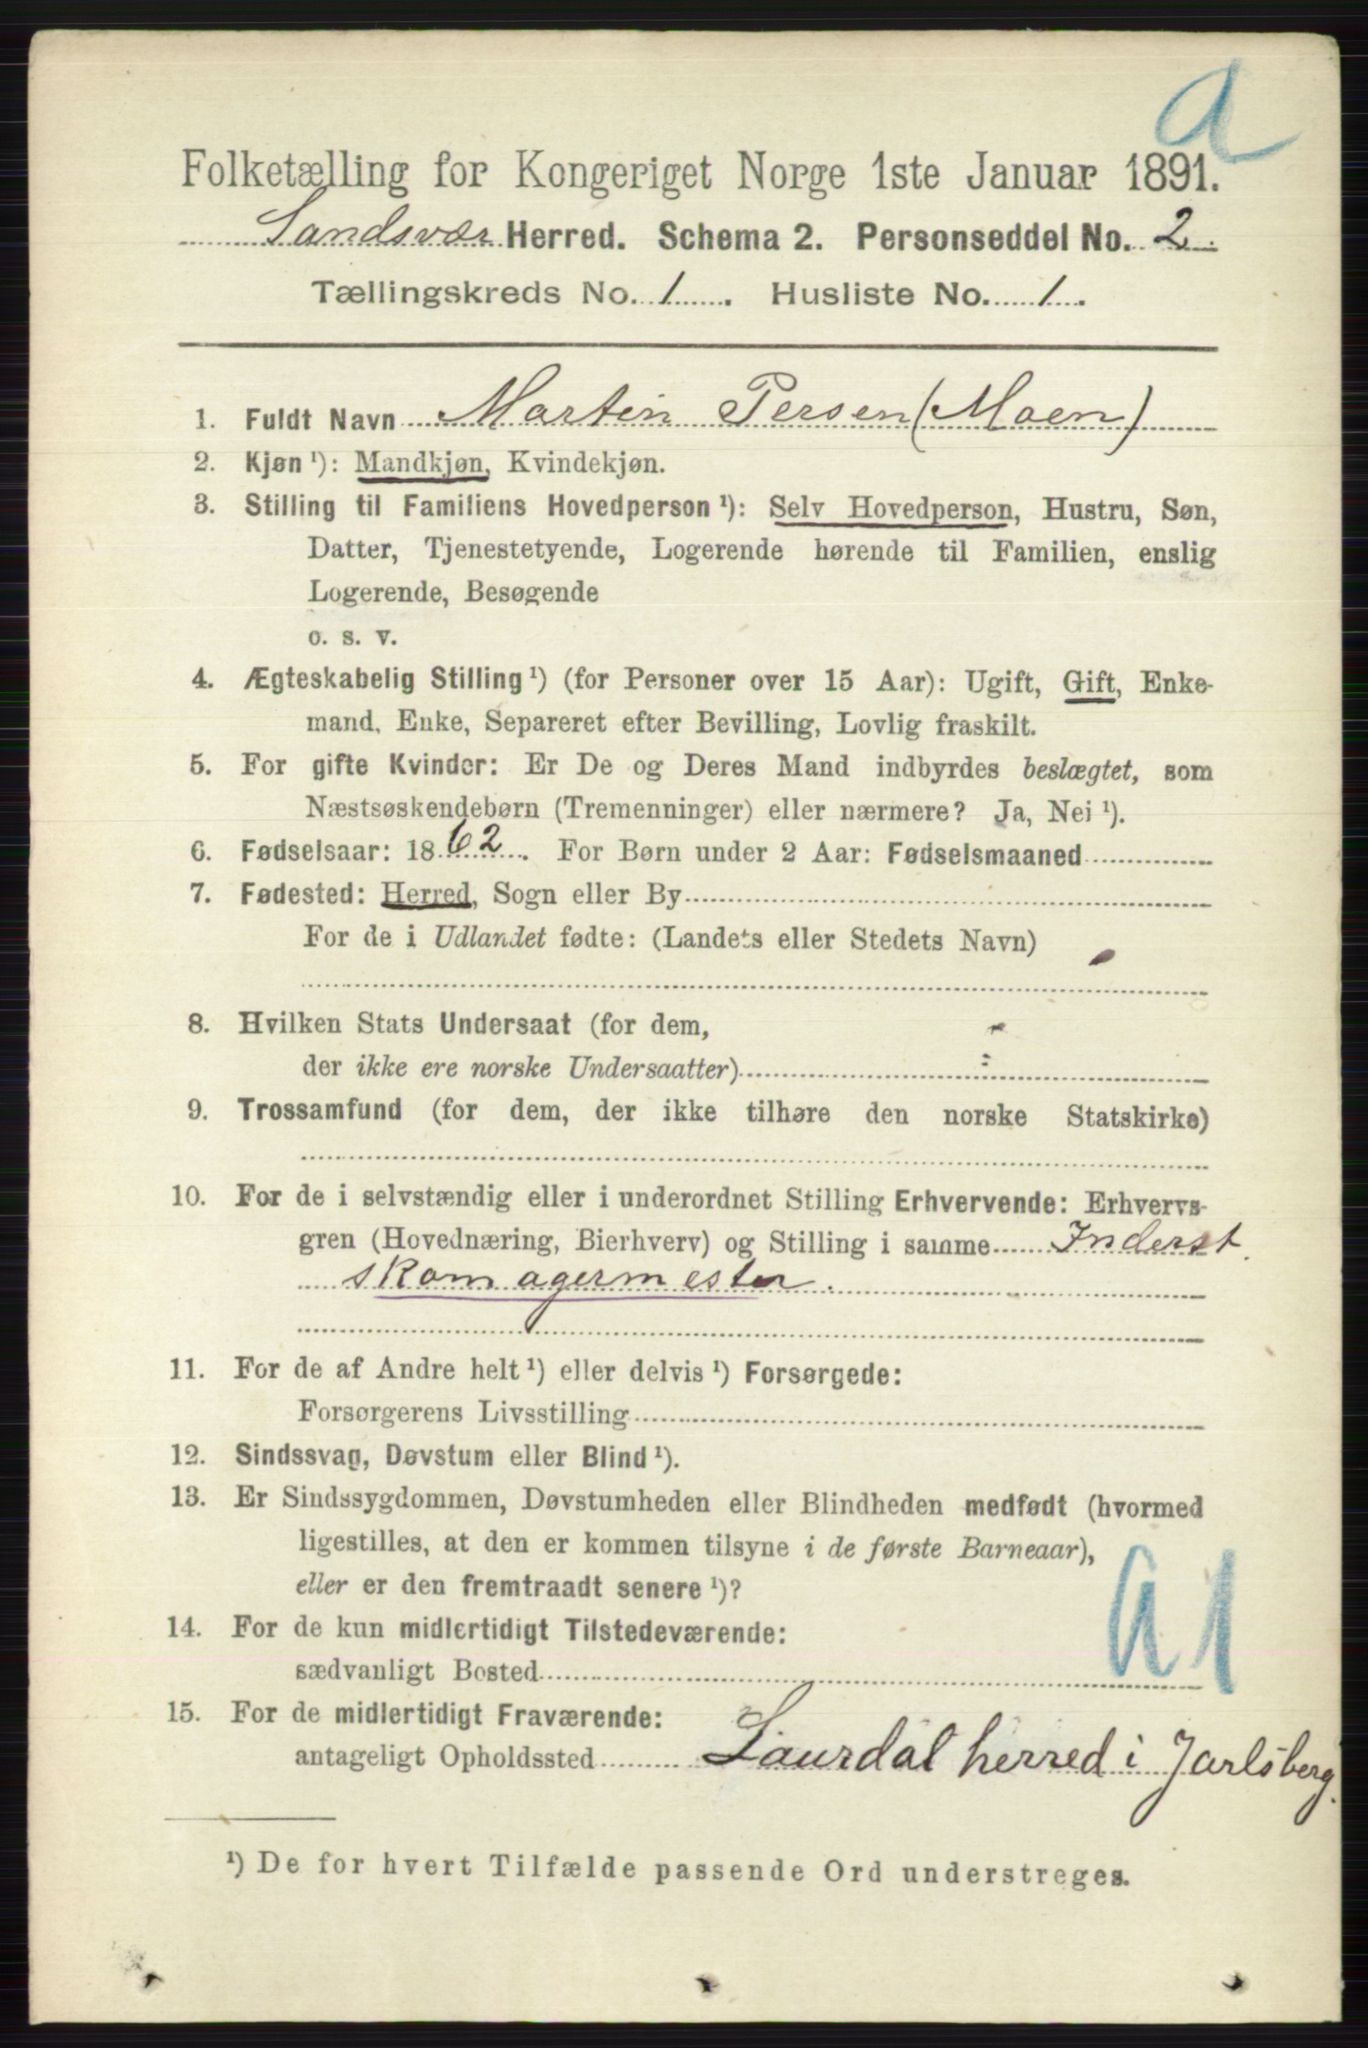 a
Folketælling for Kongeriget Norge 1ste Januar 1891.
Sandsvær Herred. Schema 2. Personseddel No. 2.
Tællingskreds No. 1. Husliste No. 1.
1. Fuldt Navn Martin Persen (Moen)
2. Kjøn ¹): Mandkjøn, Kvindekjøn.
3. Stilling til Familiens Hovedperson ¹): Selv Hovedperson, Hustru, Søn,
Datter, Tjenestetyende, Logerende hørende til Familien, enslig
Logerende, Besøgende
o. s. v.
4. Ægteskabelig Stilling ¹) (for Personer over 15 Aar): Ugift, Gift, Enke-
mand, Enke, Separeret efter Bevilling, Lovlig fraskilt.
5. For gifte Kvinder: Er De og Deres Mand indbyrdes beslægtet, som
Næstsøskendebørn (Tremenninger) eller nærmere? Ja, Nei ¹).
6. Fødselsaar: 1862. For Børn under 2 Aar: Fødselsmaaned
7. Fødested: Herred, Sogn eller By
For de i Udlandet fødte: (Landets eller Stedets Navn)
8. Hvilken Stats Undersaat (for dem,
der ikke ere norske Undersaatter)
9. Trossamfund (for dem, der ikke tilhøre den norske Statskirke)
10. For de i selvstændig eller i underordnet Stilling Erhvervende: Erhvervs-
gren (Hovednæring, Bierhverv) og Stilling i samme Inderst.
skomagermester.
11. For de af Andre helt ¹) eller delvis ¹) Forsørgede:
Forsørgerens Livsstilling
12. Sindssvag, Døvstum eller Blind ¹).
13. Er Sindssygdommen, Døvstumheden eller Blindheden medfødt (hvormed
ligestilles, at den er kommen tilsyne i de første Barneaar),
eller er den fremtraadt senere ¹)?
14. For de kun midlertidigt Tilstedeværende:
sædvanligt Bosted
a1
15. For de midlertidigt Fraværende:
antageligt Opholdssted Laurdal herred i Jarlsberg.
¹) De for hvert Tilfælde passende Ord understreges.